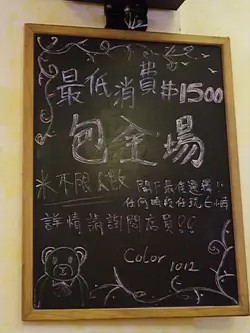 最低消費$1500
包全場
米不限人數
任何時段任玩七小時
詳情請詢問店員!!
Color
1012